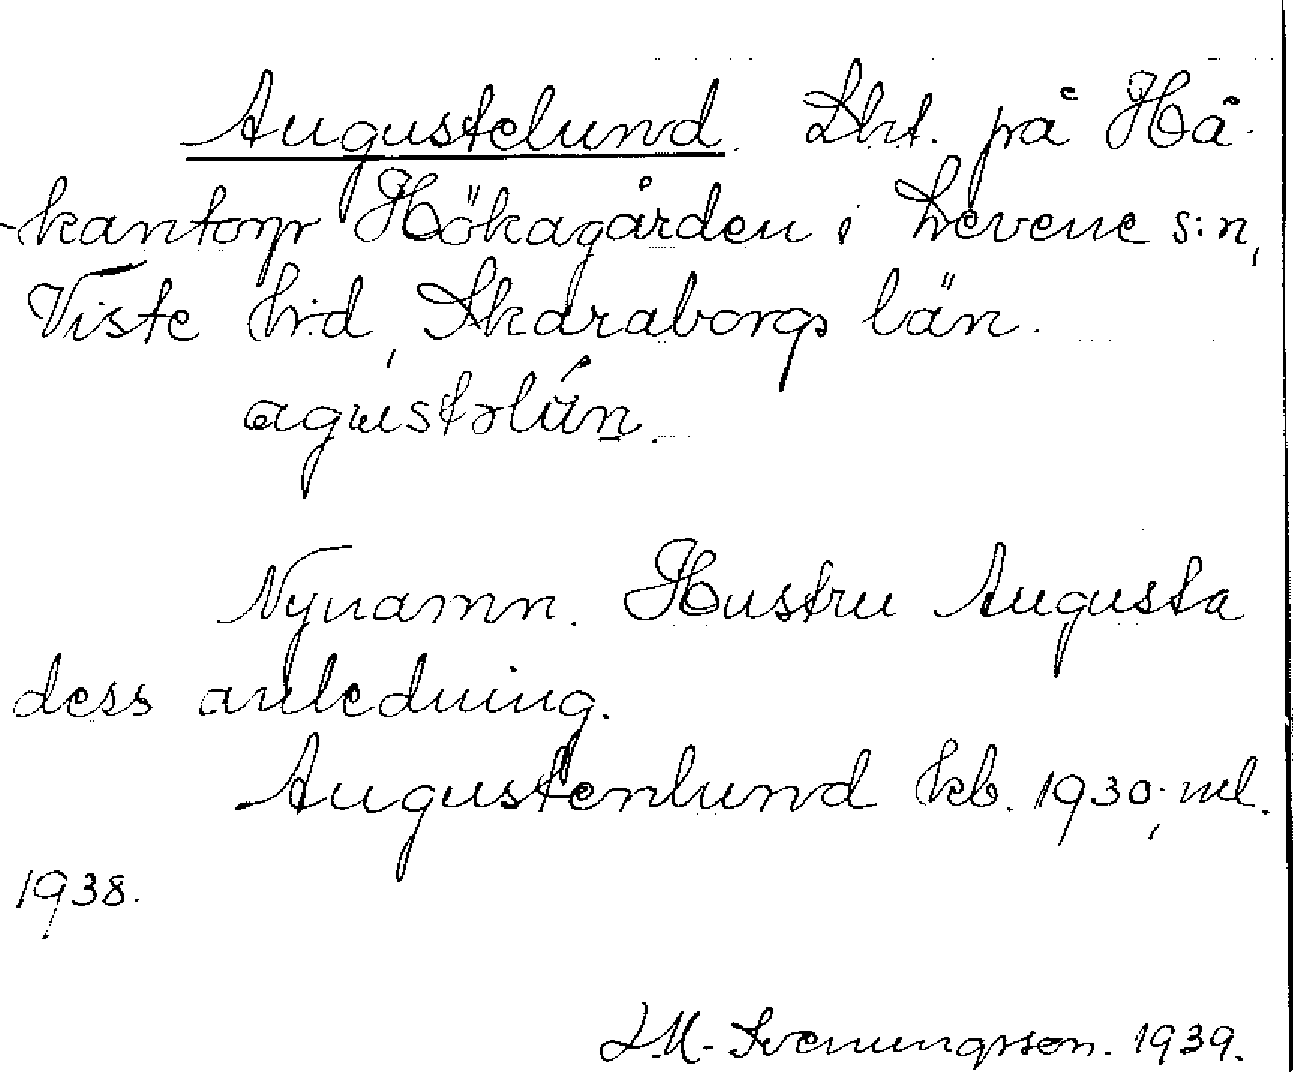 Augustelund. Lht. på Hå-
kantorp Hökagården i Levene s:n,
Viste hd, Skaraborgs län.
agustəlún.
Nynamn. Hustru Augusta
dess anledning.
Augustenlund kb. 1930; ml.
1938.
L.M. Svenungsson. 1939.